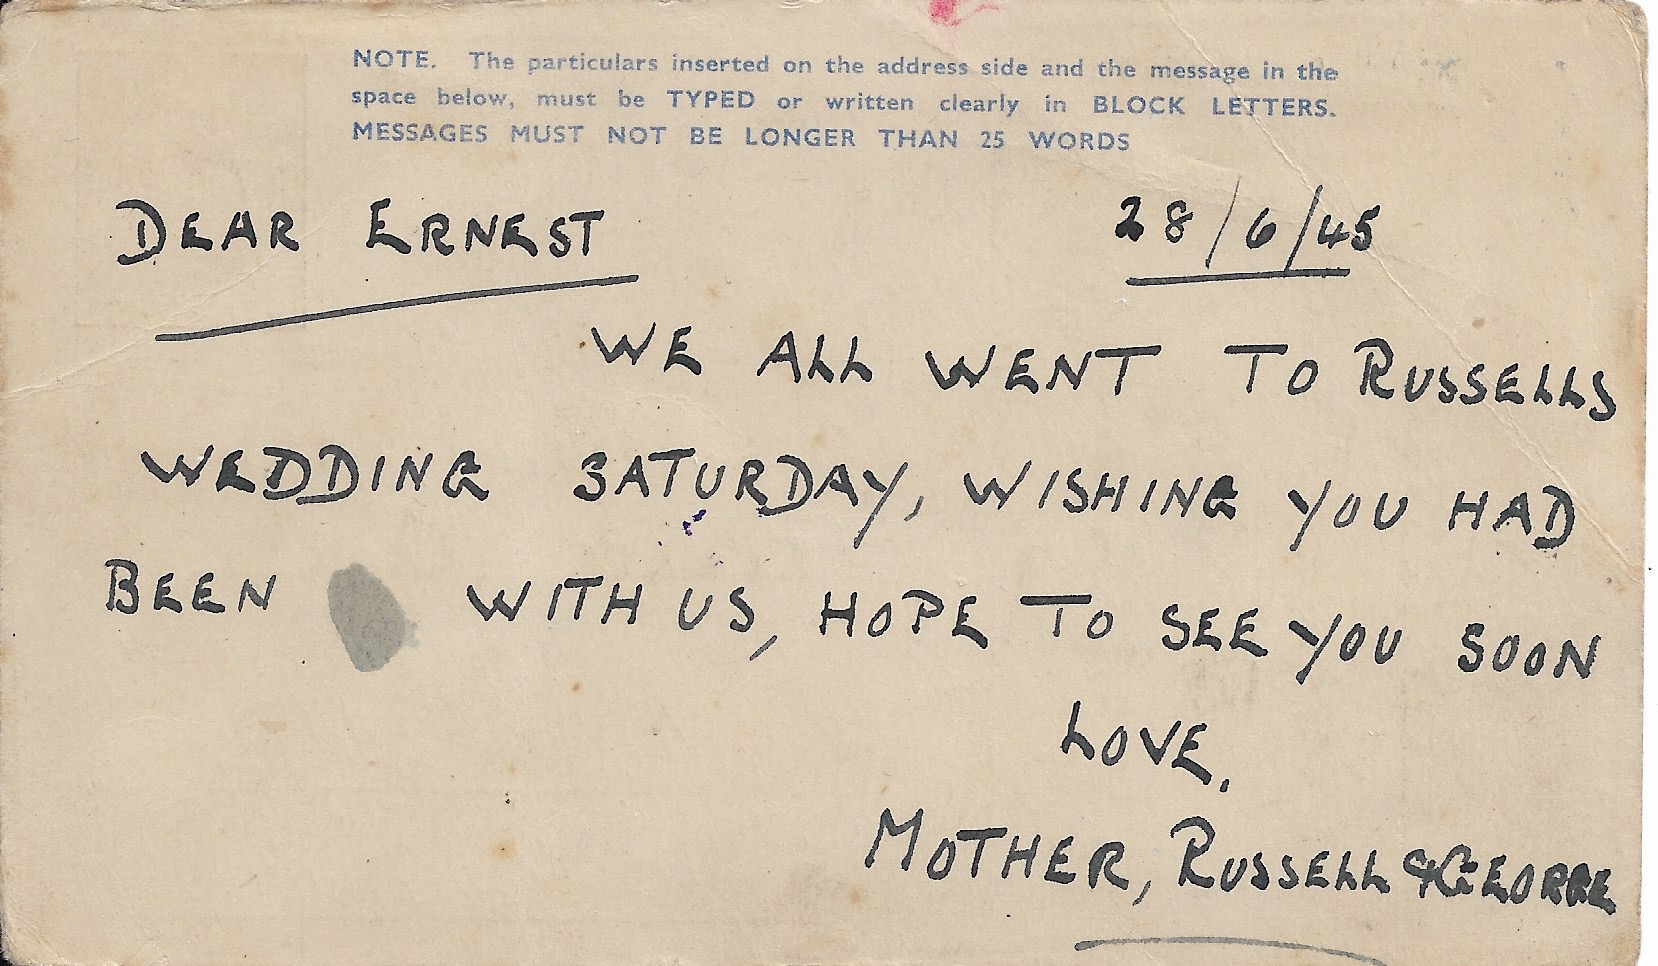 NOTE. The particulars inserted on the address side and the message in the
space below, must be TYPED or written clearly in BLOCK LETTERS.
MESSAGES MUST NOT BE LONGER THAN 25 WORDS
DEAR ERNEST 28/6/45
WE ALL WENT TO RUSSELLS
WEDDING SATURDAY, WISHING YOU HAD
BEEN WITH US, HOPE TO SEE YOU SOON
LOVE.
MOTHER, RUSSELL & GEORGE